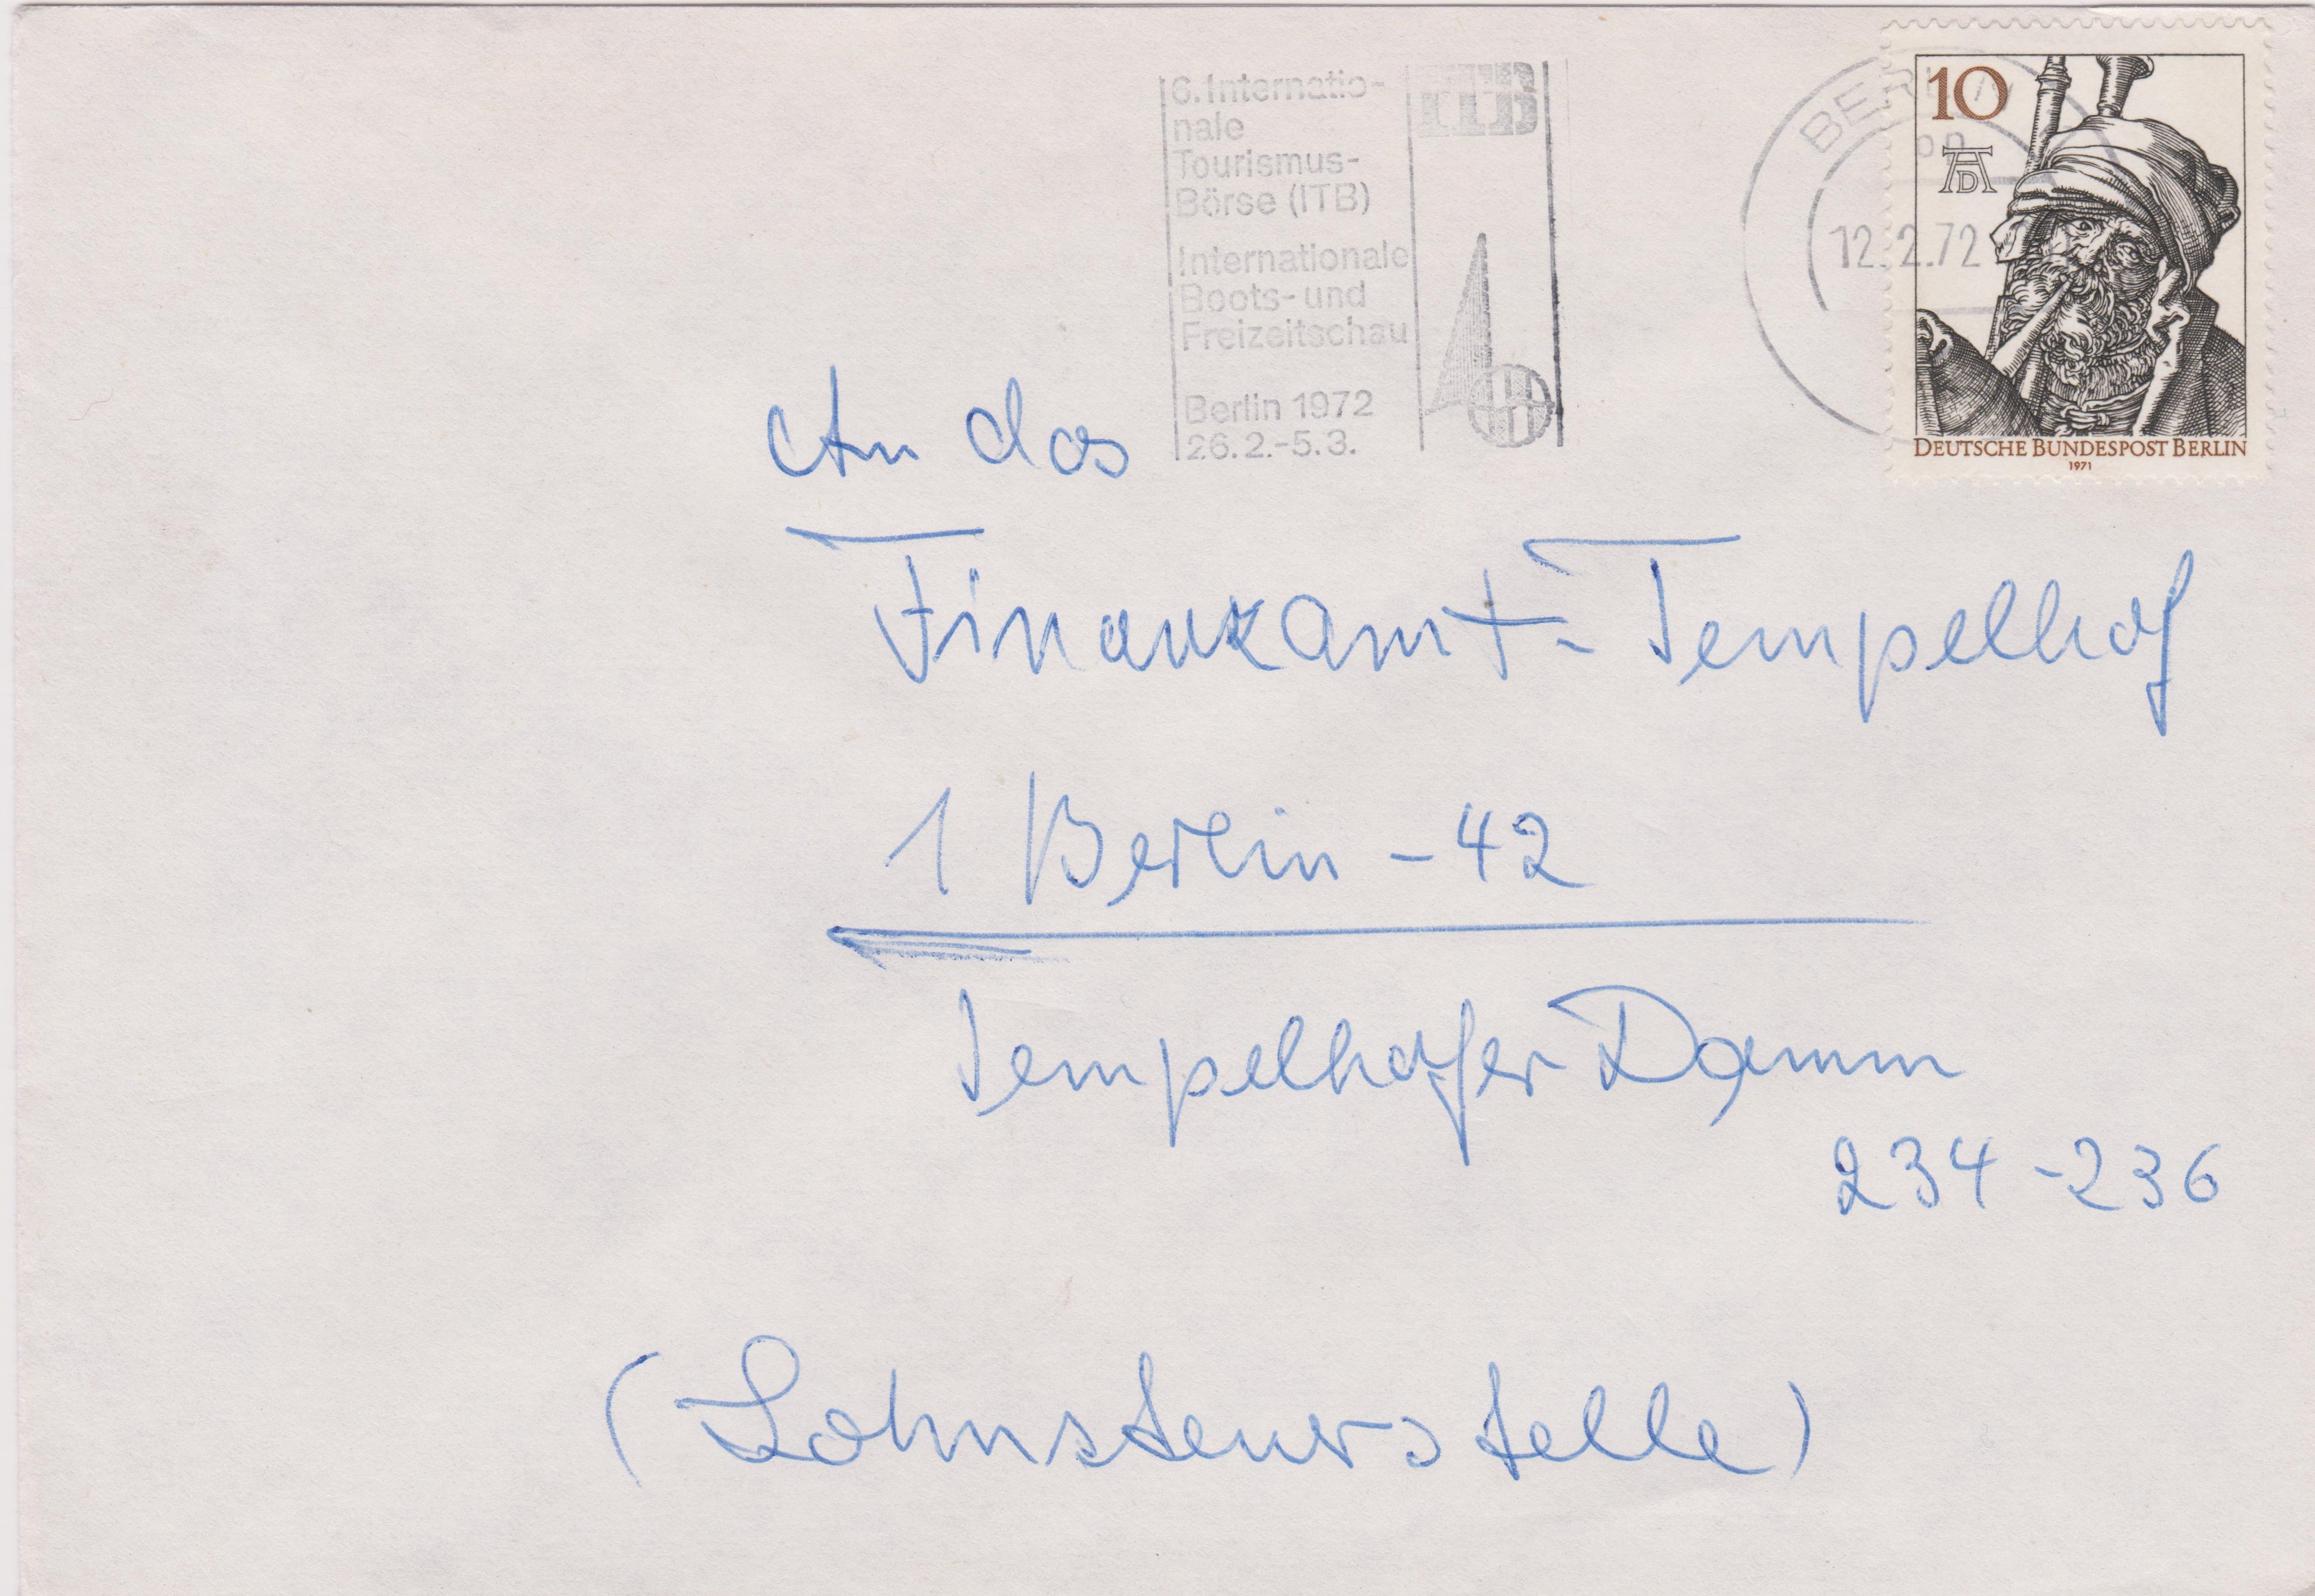 6. Internatio-
nale
Tourismus-
Börse (ITB)
Internationale
Boots- und
Freizeitschau
Berlin 1972
26.2.-5.3.
ITB
BERLIN
12.2.72
10
AD
DEUTSCHE BUNDESPOST BERLIN
1971
An das
Finanzamt - Tempelhof
1 Berlin - 42
Tempelhofer Damm
234 - 236
(Lohnsteuerstelle)